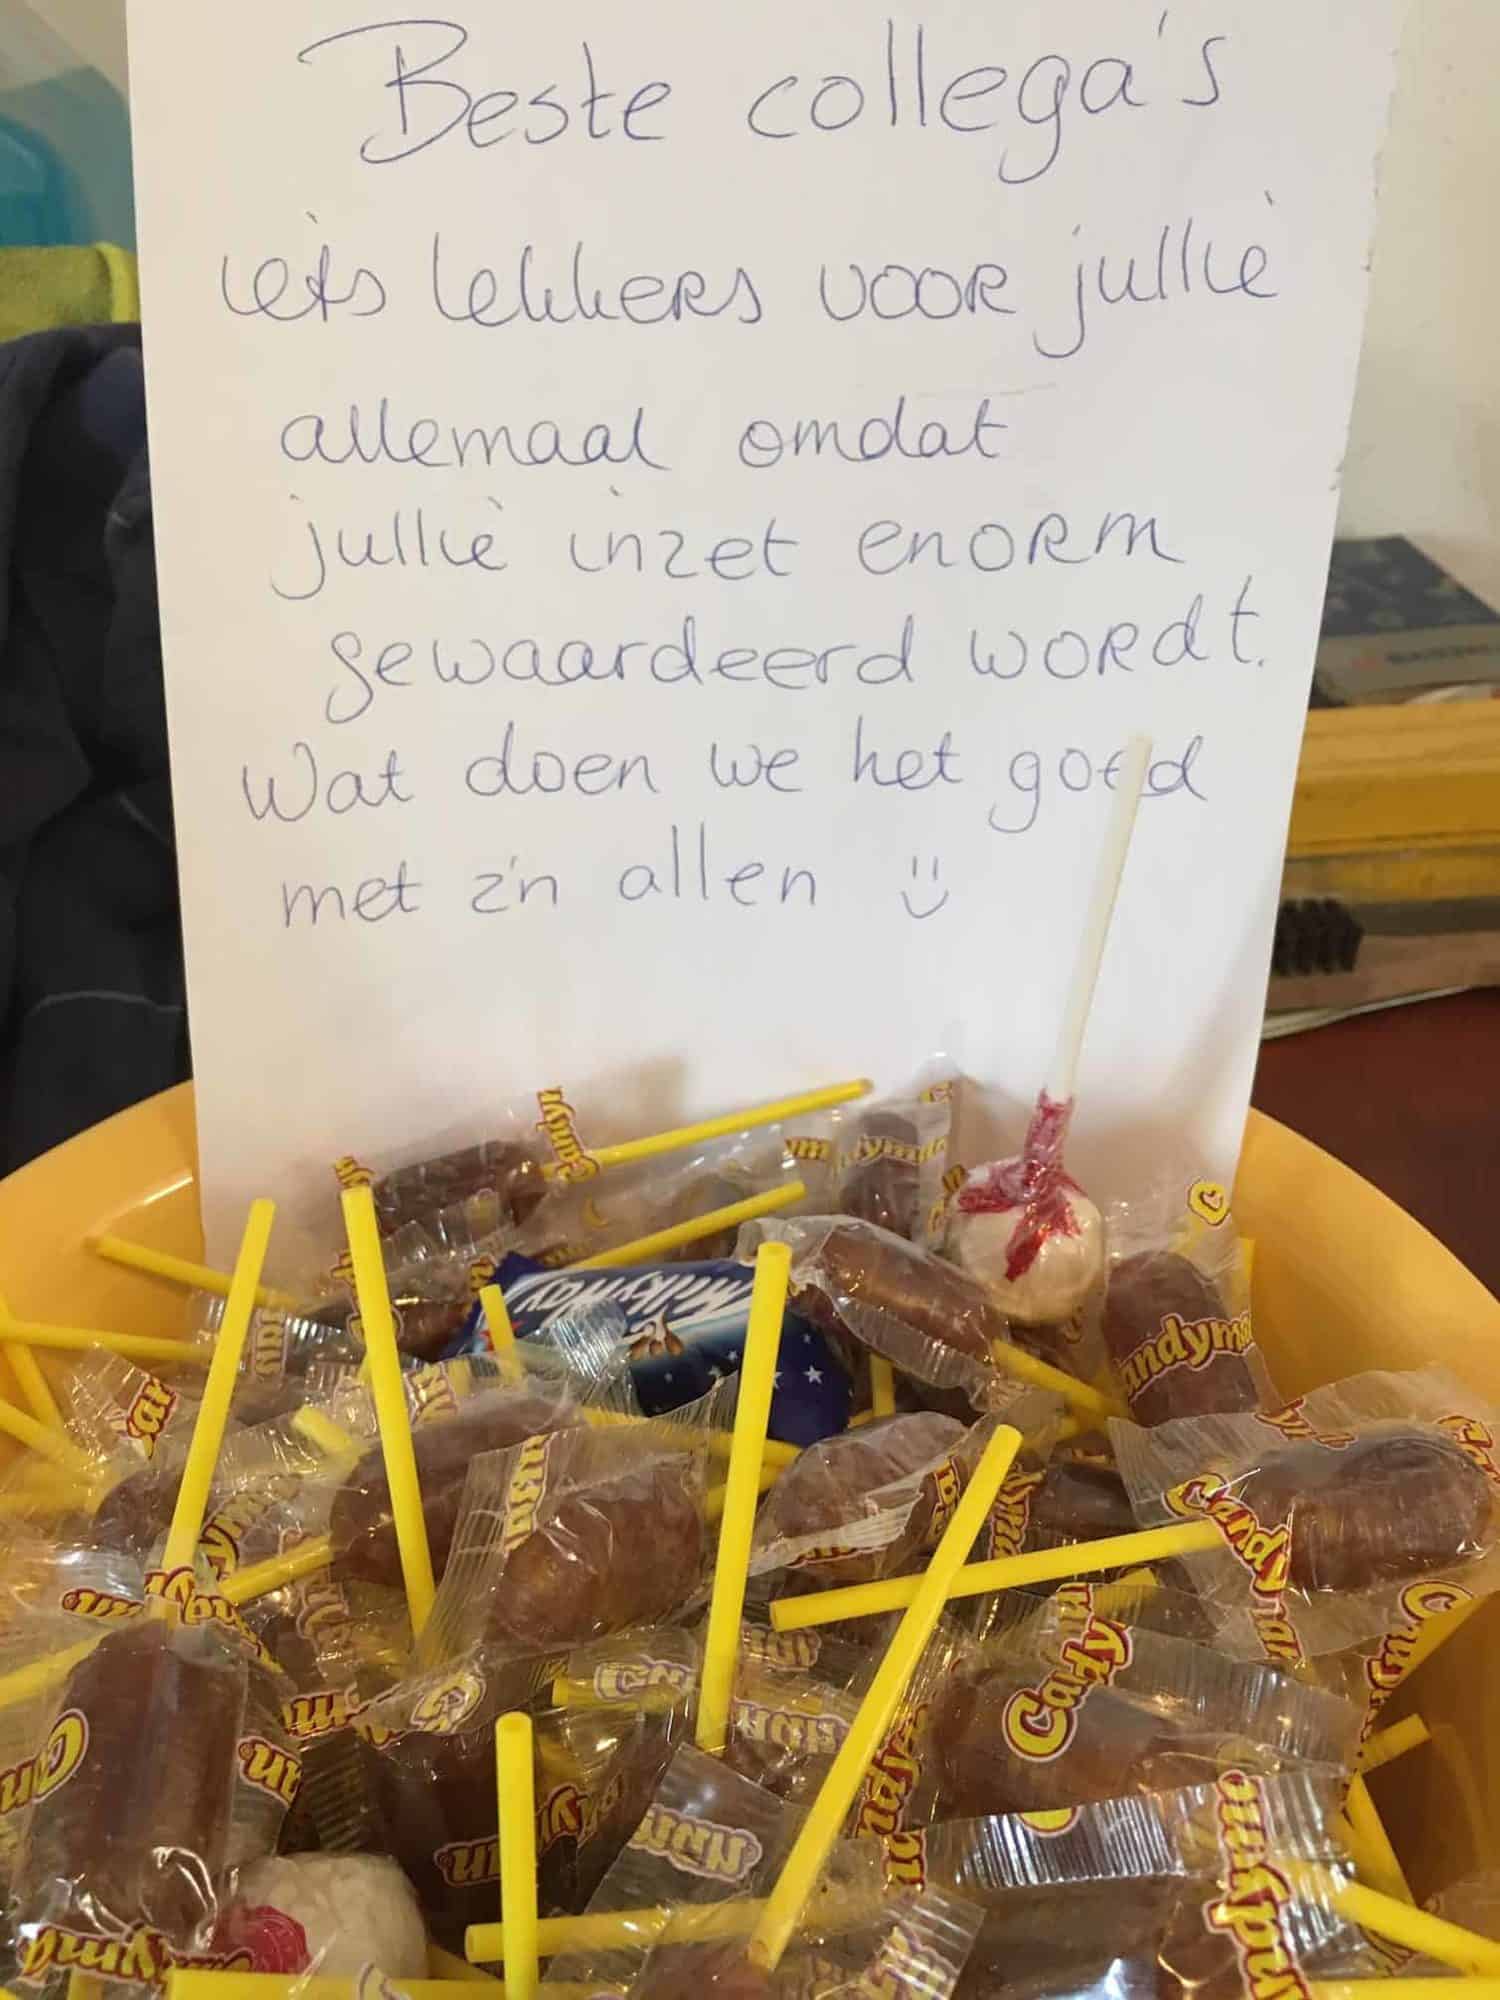 Beste collega's
iets lekkers voor jullie
allemaal omdat
jullie inzet enorm
gewaardeerd wordt.
Wat doen we het goed
met z'n allen
MilkyWay
Candyman
Candyman
Candy